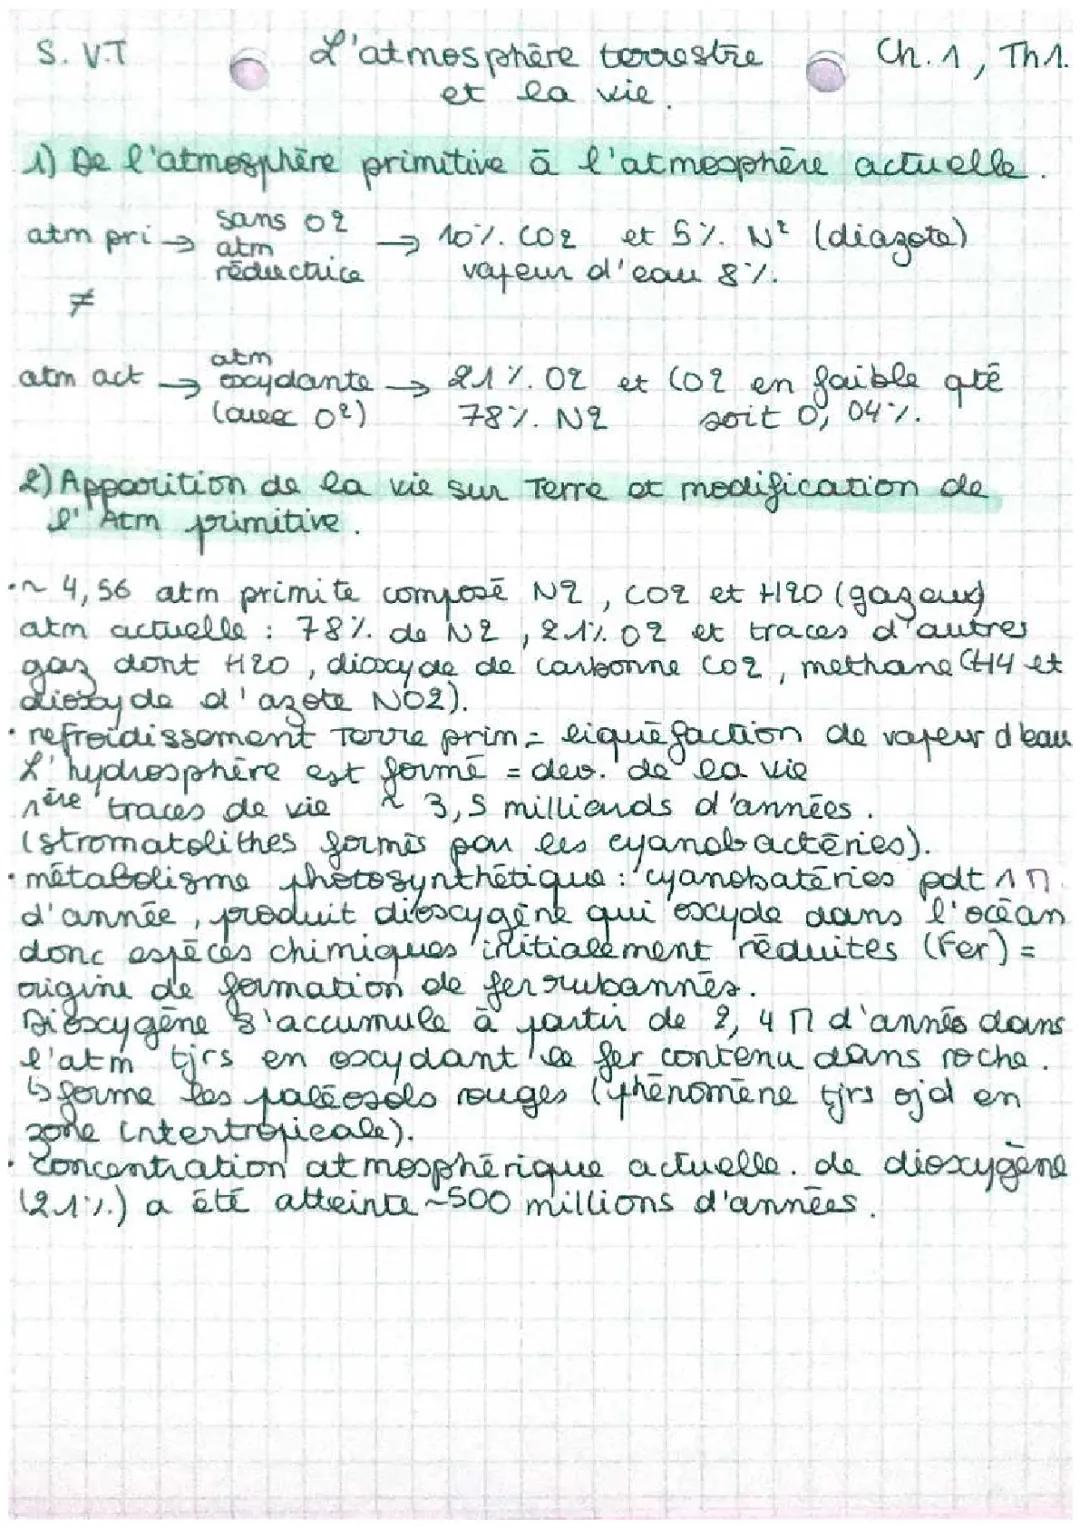 S. V.T L'atmosphère terrestre Ch. 1, Th1.
et la vie.
1) De l'atmosphère primitive à l'atmosphère actuelle.
atm pri → sans O2 → 10% CO2 et 5% N² (diazote)
atm
réductrice vapeur d'eau 8%.
≠
atm act → atm
oxydante → 21% O2 et CO2 en faible qté
(avec O²) 78% N2 soit 0,04%.
2) Apparition de la vie sur Terre et modification de
l'Atm primitive.
• ~ 4,56 atm primite composé N2, CO2 et H2O (gazeux)
atm actuelle : 78% de N2, 21% O2 et traces d'autres
gaz dont H2O, dioxyde de carbonne CO2, méthane CH4 et
dioxyde d'azote NO2).
• refroidissement Terre prim = liquéfaction de vapeur d'eau
L'hydrosphère est formé = dev. de la vie
1ère traces de vie ~ 3,5 milliards d'années.
(stromatolithes formés par les cyanobactéries).
• métabolisme photosynthétique : cyanobatéries pdt 1 M
d'année, produit dioxygène qui oxyde dans l'océan
donc espèces chimiques initialement réduites (Fer) =
origine de formation de fer rubannés.
Dioxygène s'accumule à partir de 2,4 M d'annés dans
l'atm tjrs en oxydant le fer contenu dans roche.
↳ forme les paléosols rouges (phénomène tjrs ojd en
zone intertropicale).
• Concentration atmosphérique actuelle. de dioxygène
(21%) a été atteinte ~500 millions d'années.